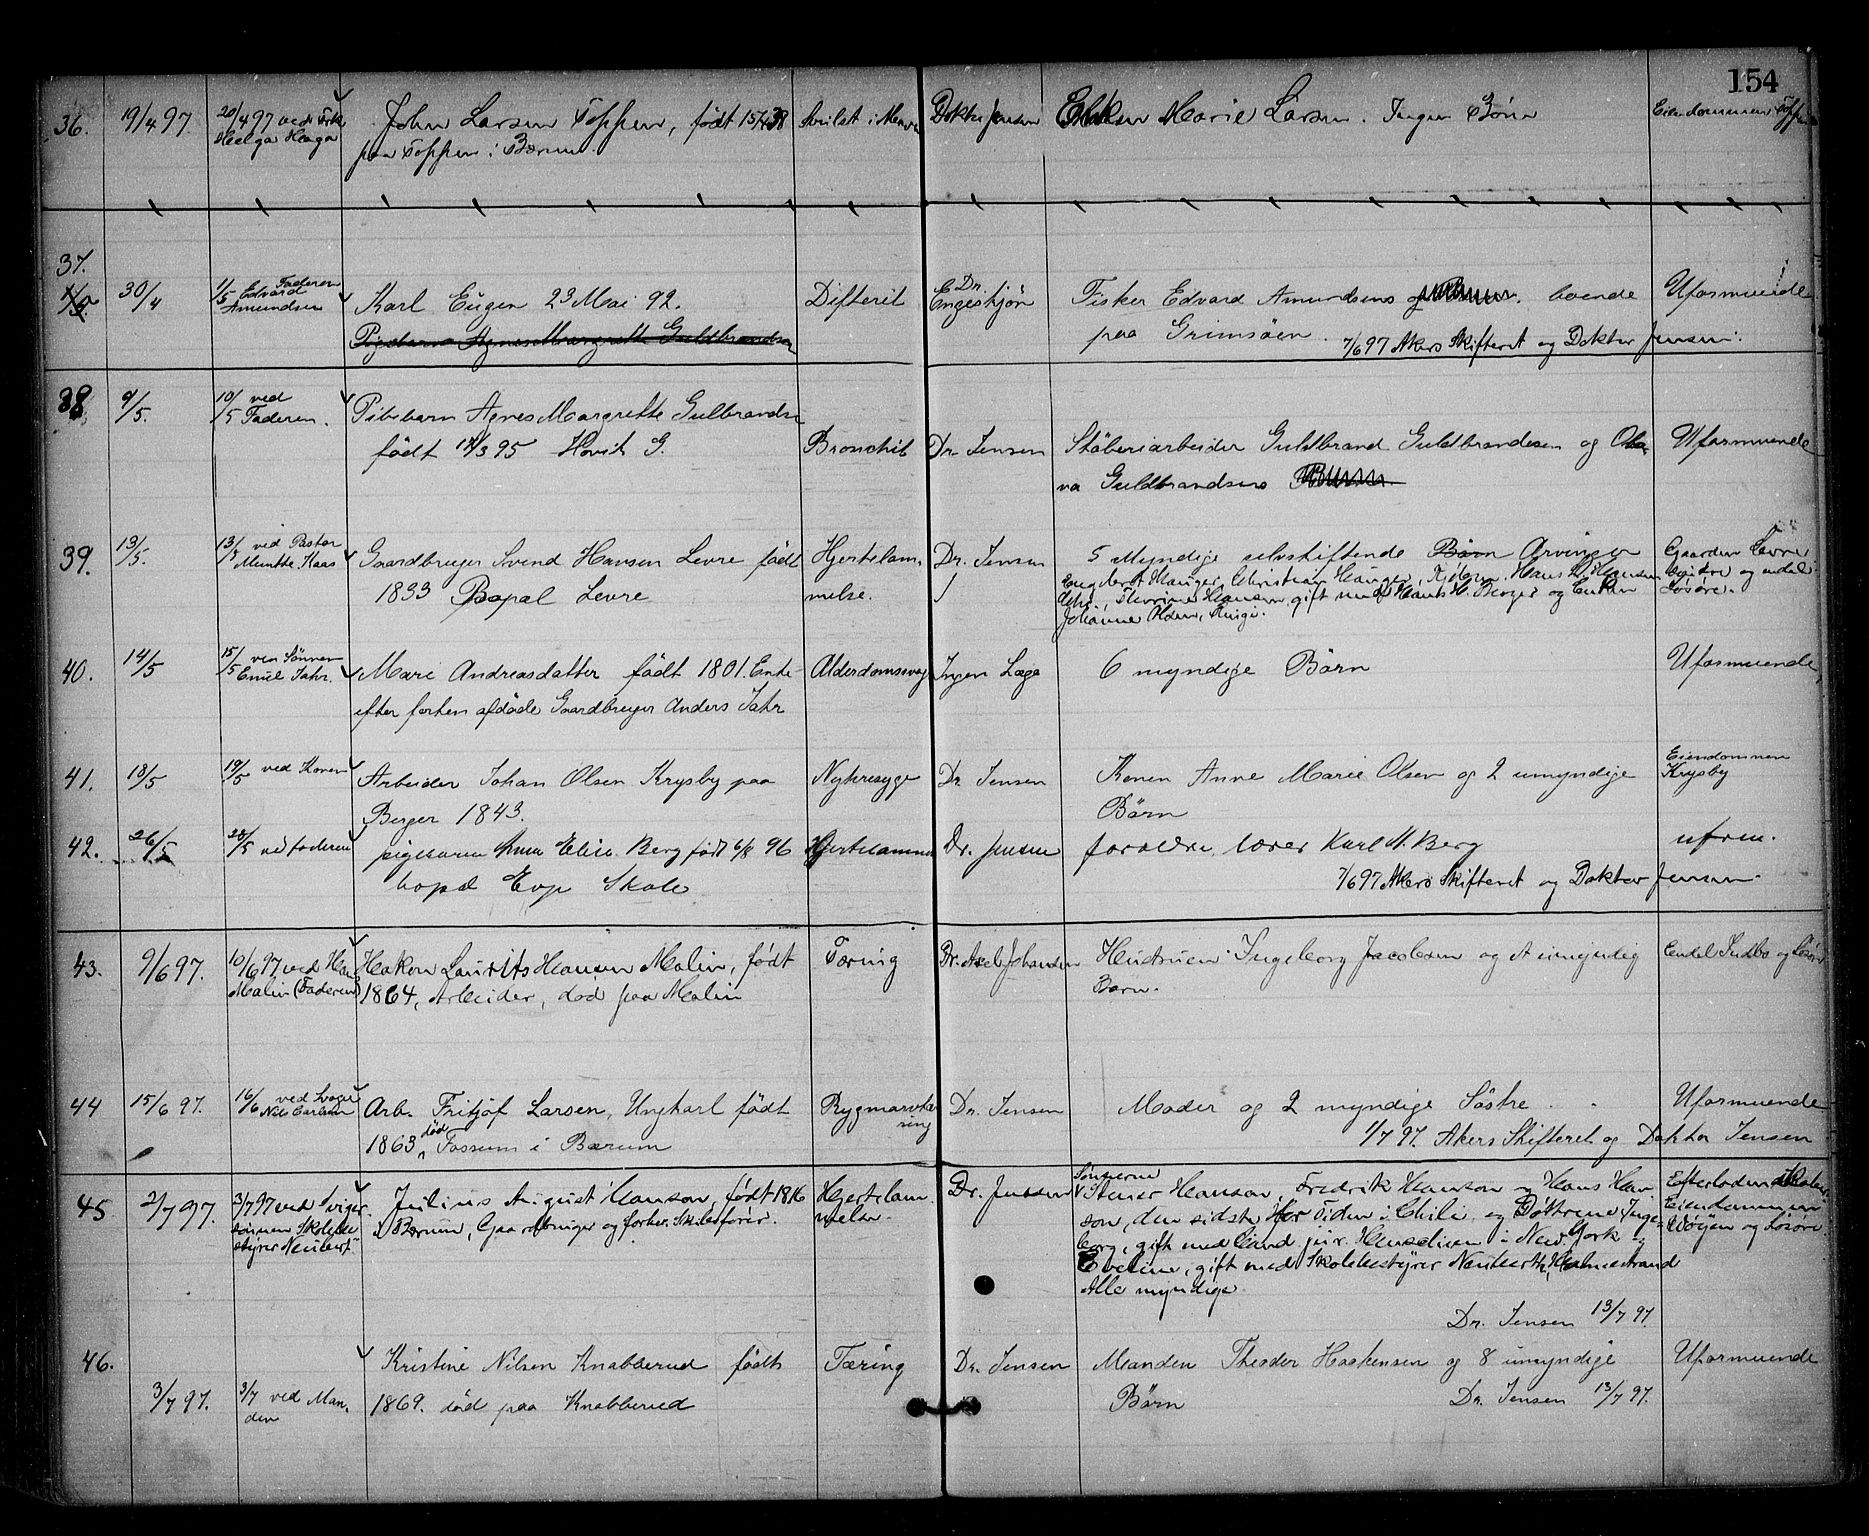 154
36. 19/4 97. 20/4 97 ved John Larsen Toppen, født Doktor Jensen Enken Marie Larsen. Ingen Børn Eiendommen
Helga Haga paa Toppen i Bærum.
37.
30/4 1/5 Faderen Edvard Amundsen Karl Eugen 23 Mai 92. Difterit Dr. Engeskjøn Fisker Edvard Amundsens boende Uformuende
Pigebarn Agnes Margrethe Guldbrandsen paa Grimsöen. 7/6 97 Akers Skifteret og Doktor Jensen.
38. 9/5. 10/5 ved Faderen. Pikebarn Agnes Margrethe Gulbrandsen
født 95 Høvik G. Bronchit Dr. Jensen Støberiarbeider Guldbrand Guldbrandsen og Ola- Uformuende
va Guldbrandsens
39. 13/5. 13/5 ved Pastor Munthe Kaas Gaardbruger Svend Hansen Levre født Hjertelam- Dr. Jensen 5 Myndige selvskiftende Børn Arvinger Gaarden Levre
1833 Bopæl Levre melse. Hauger, Christian Hauger, Hans Hansen og endel
Thorine Hansen gift med Hans H. Berger og Enken Løsøre.
Johanne Olsen, Ringi.
40. 14/5 15/5 ved Sønnen Emil Jahr. Mari Andreasdatter født 1801. Enke Alderdomssvag Ingen Læge 6 myndige Børn Uformuende
efter forhen afdøde Gaardbruger Anders Jahr
41. 18/5 19/5 ved Konen Arbeider Johan Olsen Krysby paa Nyresyge Dr. Jensen Konen Anne Marie Olsen og 2 umyndige Eiendommen Krysby
Berger 1843. Børn
42. 26/5 28/5 ved faderen pigebarn Anna Elise Berg født 6/8 96 Hjertelammelse Dr. Jensen forældre, lærer Karl A. Berg uform.
bopæl Evje Skole 7/6 97 Akers Skifteret og Doktor Jensen.
43. 9/6 97. 10/6 97 ved Hans Malin (Faderen) Hakon Laurits Hansen Malin, født Tæring Dr. Axel Johansen Hustruen Ingeborg Jacobsen og et umyndig Endel Indbo og Løsøre
1864, Arbeider, død paa Malin Barn.
44 15/6 97. 16/6 ved Svoger Nils Carlsen Arb. Fritjof Larsen, Ungkarl født Rygmarvtæ- Dr. Jensen Moder og 2 myndige Søstre. Uformuende
1863, død Fossum i Bærum ring 1/7 97. Akers Skifteret og Doktor Jensen
45 2/7 97. 3/7 97 ved Sviger- Julius August Hansen, født 1816 Hjertelam- Dr. Jensen Sønnerne Stener Hanson, Fredrik Hanson og Hans Han-
sønnen Skolebestyrer Neuberth i Bærum, Gaardbruger og forhen Skibsfører. melse son, den sidste før Tiden i Chili, og Døttrene Inge- Eiendommen
borg, gift med jur. Henschien i New York og Wøyen og Løsøre.
Eveline, gift med Skolebestyrer Neuberth, Holmestrand
Alle myndige.
Dr. Jensen 13/7 97.
46. Kristine Nilsen Knabberud født Tæring Dr. Jensen Manden Theodor Haakensen og 8 umyndige Uformuende
3/7 97. 3/7 ved Man- 1869. død paa Knabberud Børn Dr. Jensen 13/7 97.
den